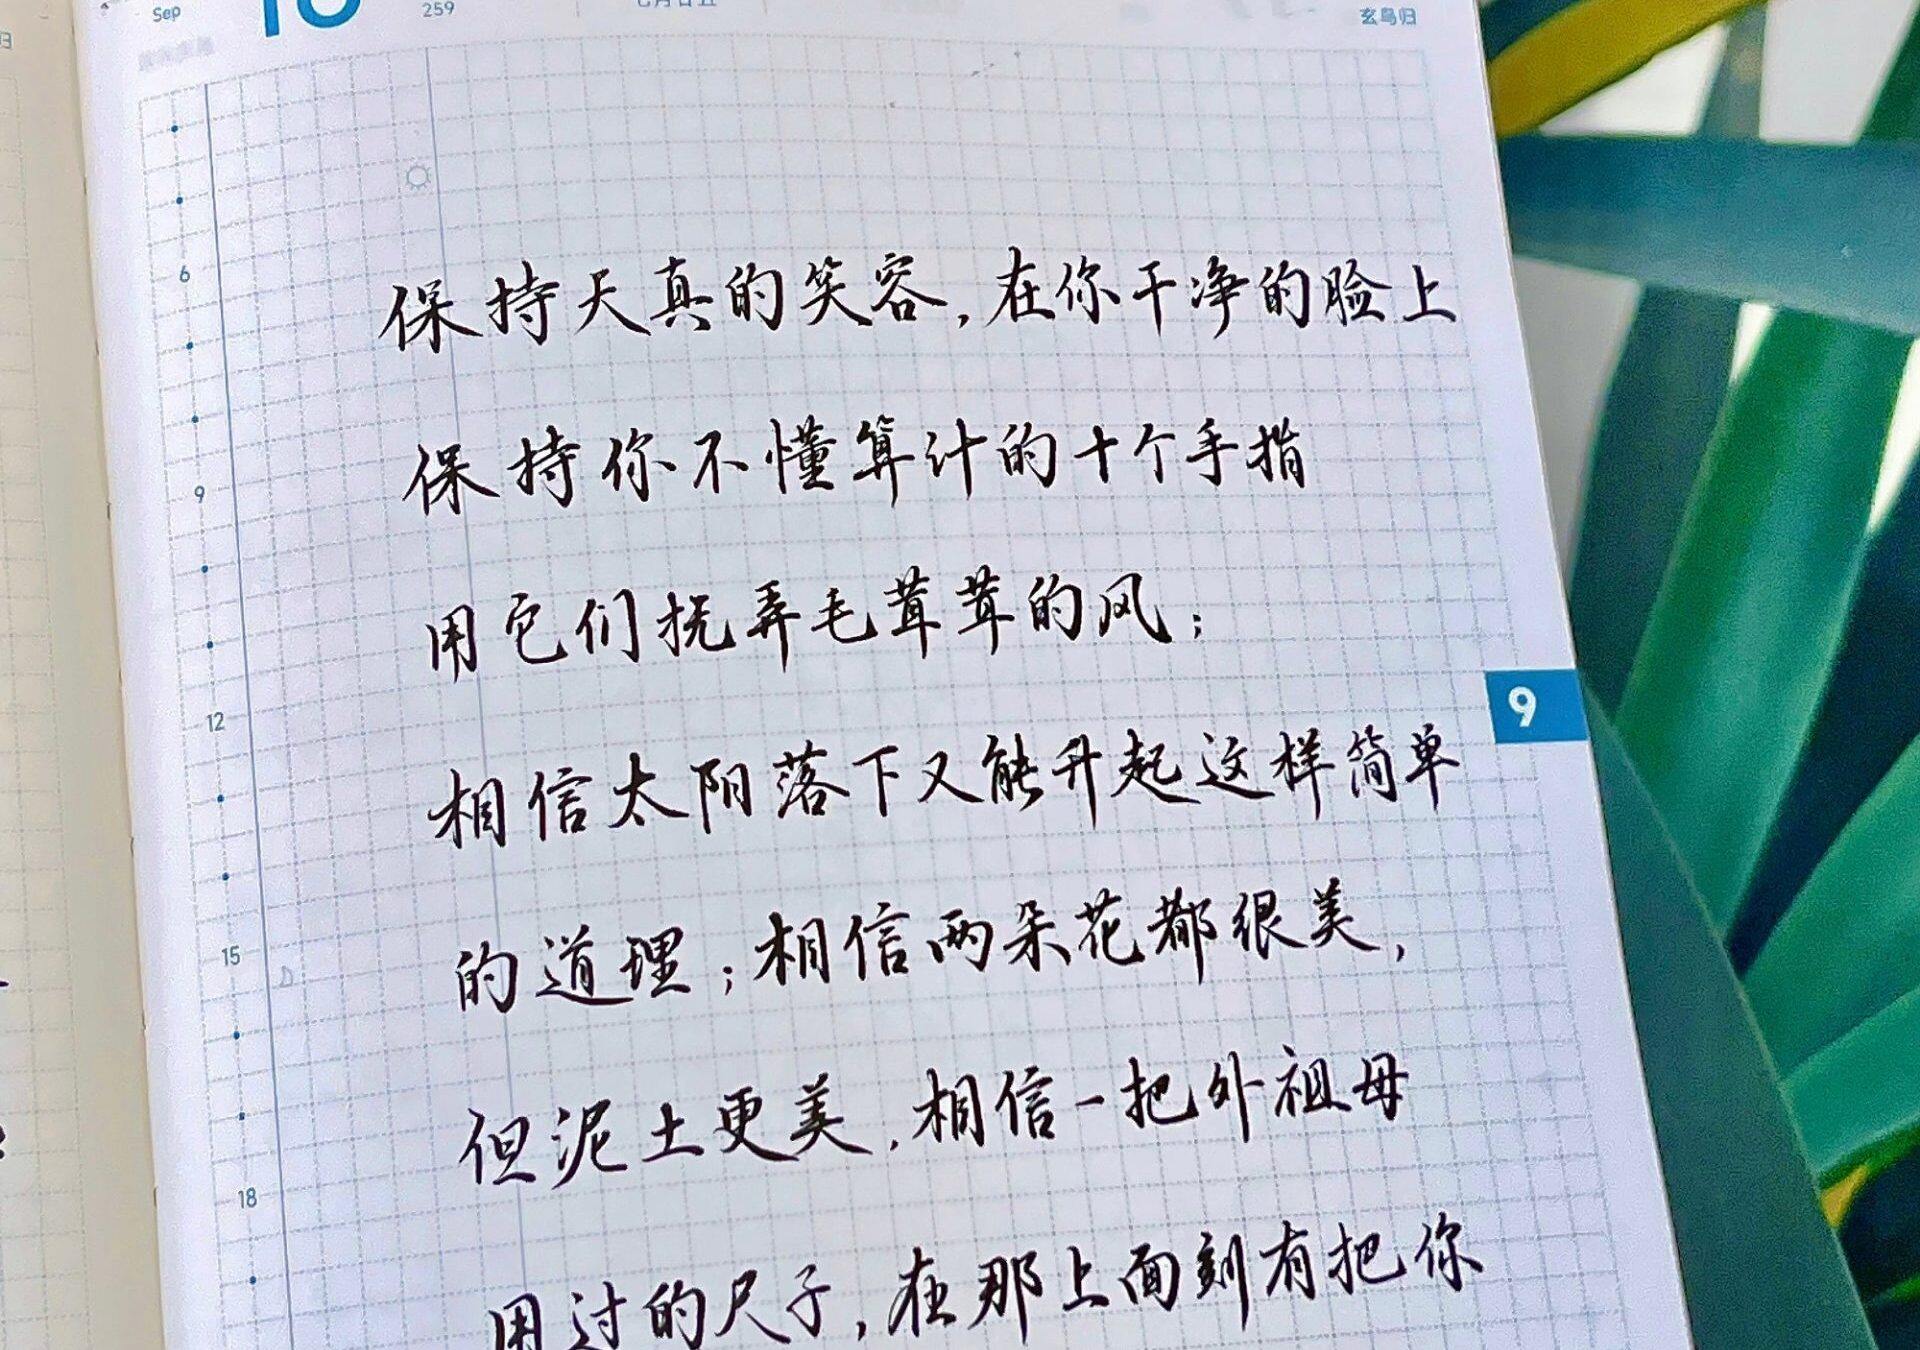 Sep
259
玄鸟归
6
保持天真的笑容,在你干净的脸上
保持你不懂算计的十个手指
9
用它们抚弄毛茸茸的风;
9
12
相信太阳落下又能升起这样简单
的道理;相信两朵花都很美,
15
但泥土更美,相信一把外祖母
18
用过的尺子,在那上面刻有把你